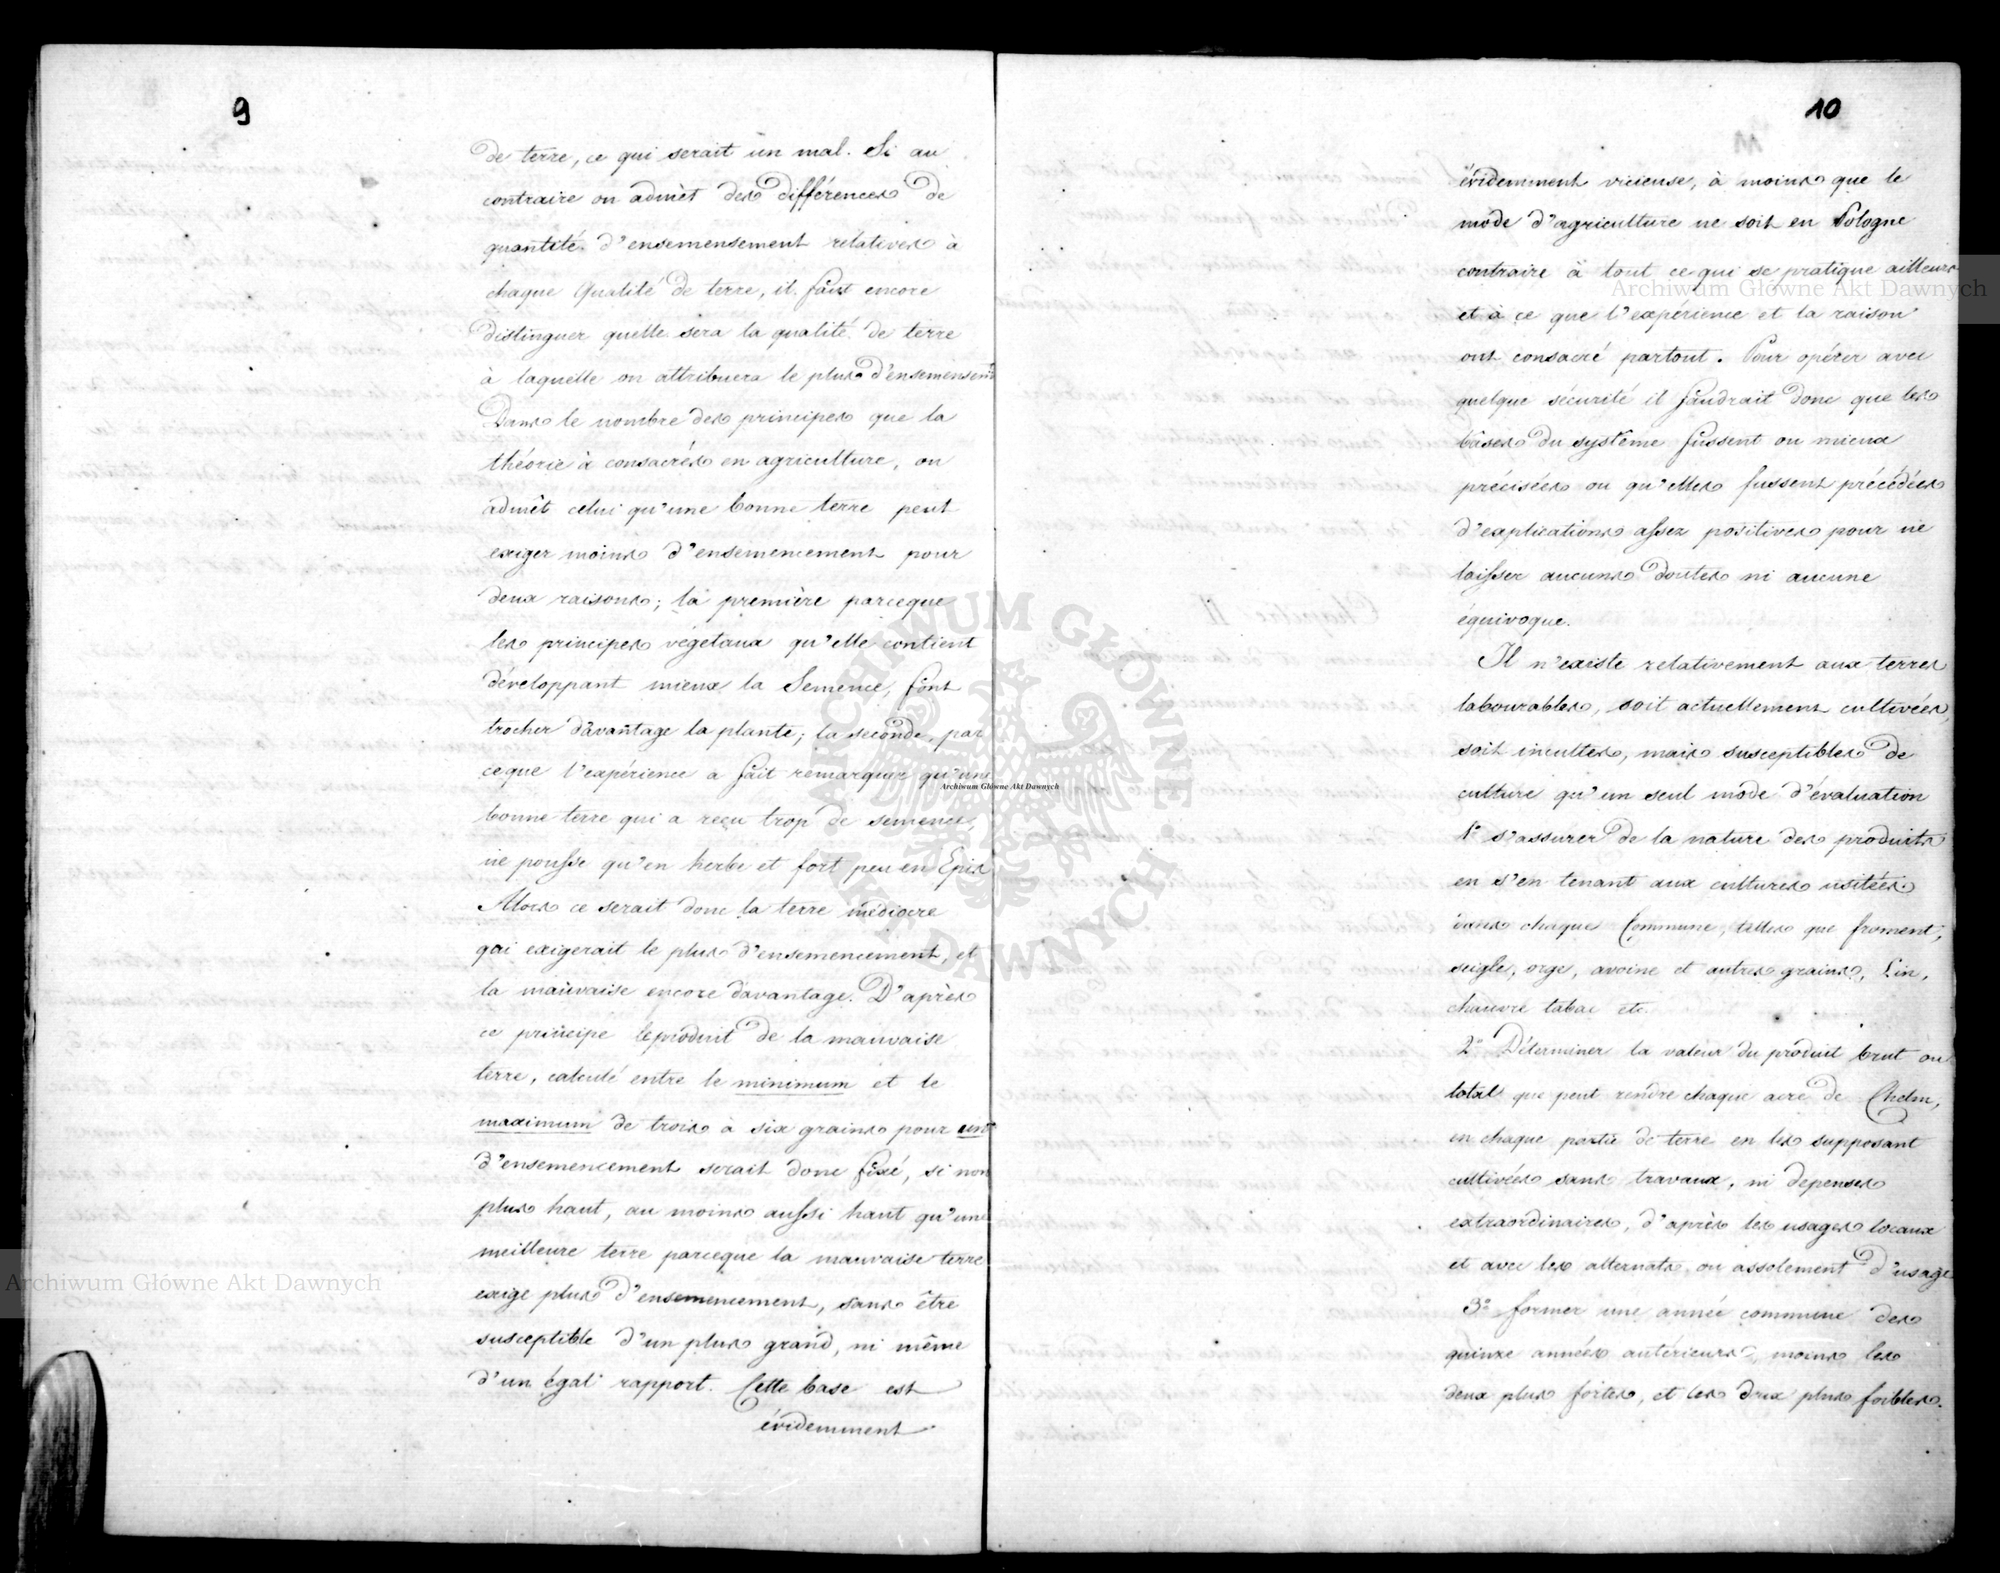 9
de terre, ce qui serait un mal. Si au
contraire on admet des différences de
quantité d'ensemensement relatives à
chaque Qualité de terre, il faut encore
distinguer quelle sera la qualité de terre
à laquelle on attribuera le plus d'ensemensemt
Dans le nombre des principes que la
théorie à consacrés en agriculture, on
admêt celui qu'une bonne terre peut
exiger moins d'ensemencement pour
deux raisons; la première parceque
les principes végetaux qu'elle contient
développant mieux la Semence, font
trocher d'avantage la plante; la seconde, par
ceque l'expérience a fait remarquer qu'une
bonne terre qui a reçu trop de semence,
ne pousse qu'en herbe et fort peu en Epis
Alors ce serait donc la terre médiocre
qui exigerait le plus d'ensemencement, et
la mauvaise encore d'avantage. D'après
ce principe le produit de la mauvaise
terre, calculé entre le minimum et le
maximum de trois à six grains pour un
d'ensemencement serait donc fixé, si non
plus haut, au moins aussi haut qu'une
meilleure terre parceque la mauvaise terre
exige plus d'ensemencement, sans être
susceptible d'un plus grand, ni même
d'un égal rapport. Cette base est
évidemment
10
évidemment vicieuse, à moins que le
mode d'agriculture ne soit en Pologne
contraire à tout ce qui se pratique ailleurs
et à ce que l'expérience et la raison
ont consacré partout. Pour opérer avec
quelque sécurité il faudrait donc que les
bâses du système fussent ou mieux
précisées ou qu'elles fussent précédées
d'explications assez positives pour ne
laisser aucuns doutes ni aucune
équivoque.
Il n'existe relativement aux terres
labourables, soit actuellement cultivées,
soit incultes, mais susceptibles de
culture qu'un seul mode d'évaluation
1° s'assurer de la nature des produits
en s'en tenant aux cultures usitées
dans chaque Commune, telles que froment,
seigle, orge, avoine et autres grains, Lin,
chanvre tabac etc.
2° Déterminer la valeur du produit brut ou
total que peut rendre chaque acre de Chelm,
en chaque partie de terre en les supposant
cultivées sans travaux, ni depenses
extraordinaires, d'après les usages locaux
et avec les alternats ou assolement d'usage
3° former une année commune des
quinze années antérieurs, moins les
deux plus fortes, et les deux plus foibles.
Archiwum Główne Akt Dawnych
Archiwum Główne Akt Dawnych
Archiwum Główne Akt Dawnych
ARCHIWUM GŁÓWNE AKT DAWNYCH